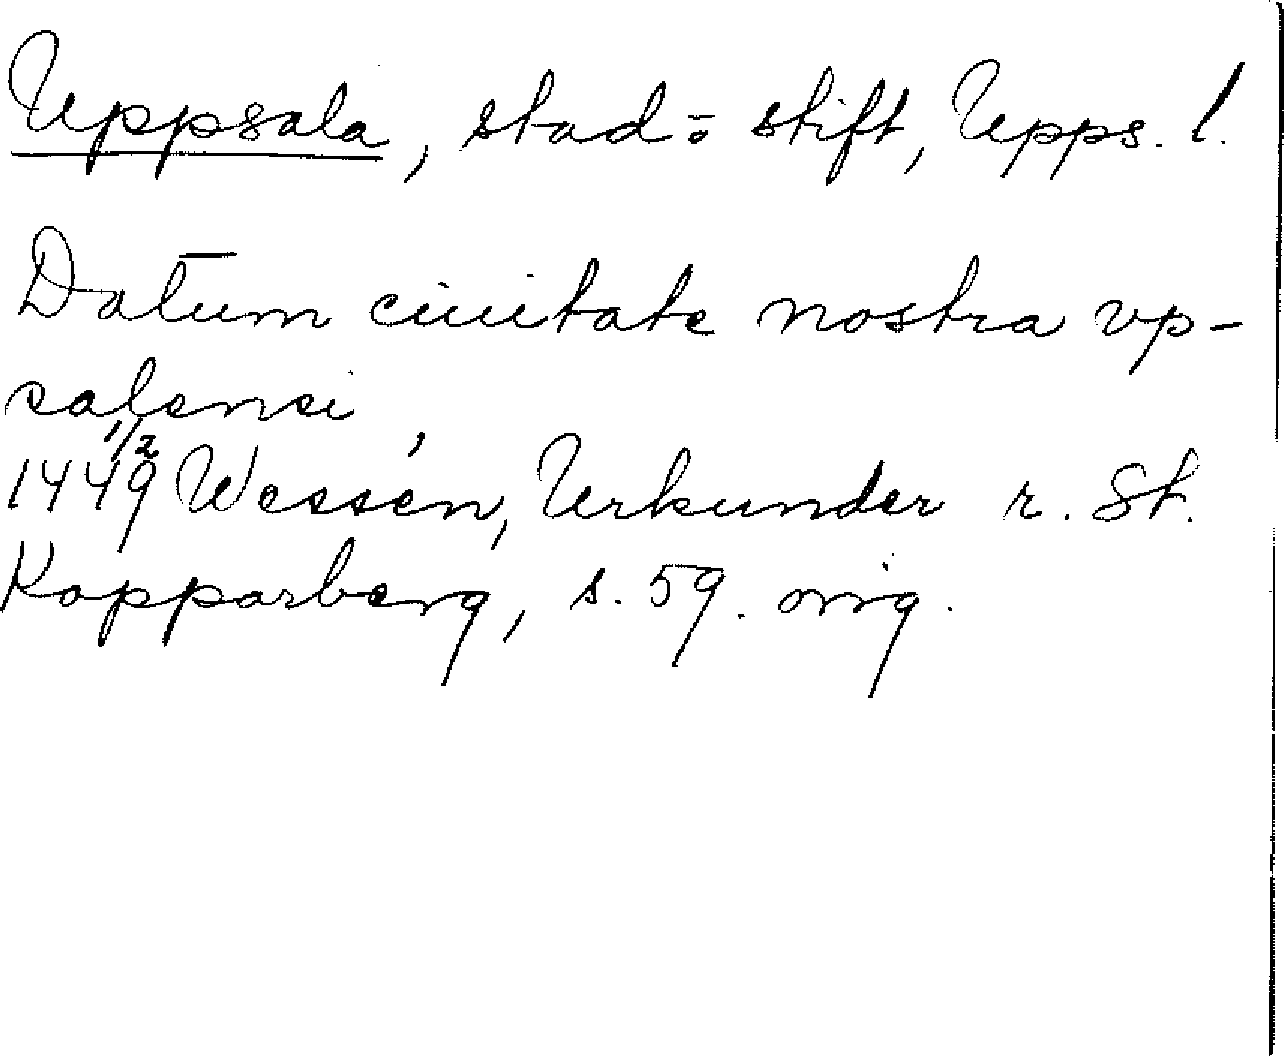 Uppsala, stad o stift, Upps. l.
Datum ciuitate nostra vp-
salensi
1/2
1449 Wessén, Urkunder r. St.
Kopparberg, s. 59. orig.